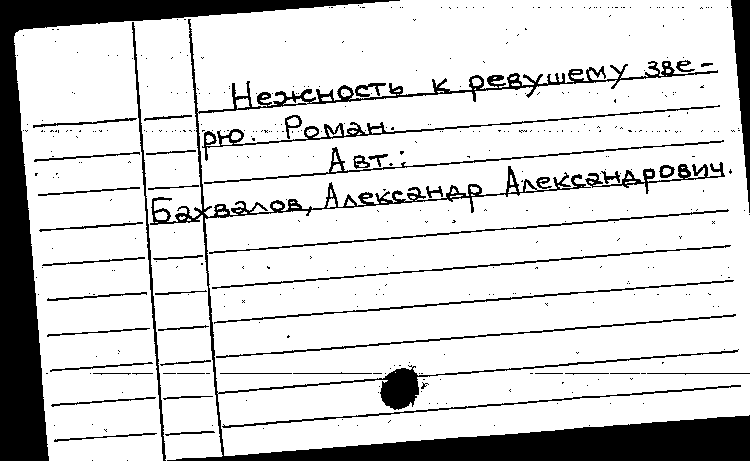 Нежность к ревушему зве-
рю. Роман.
Авт.:
Бахвалов, Александр Александрович.